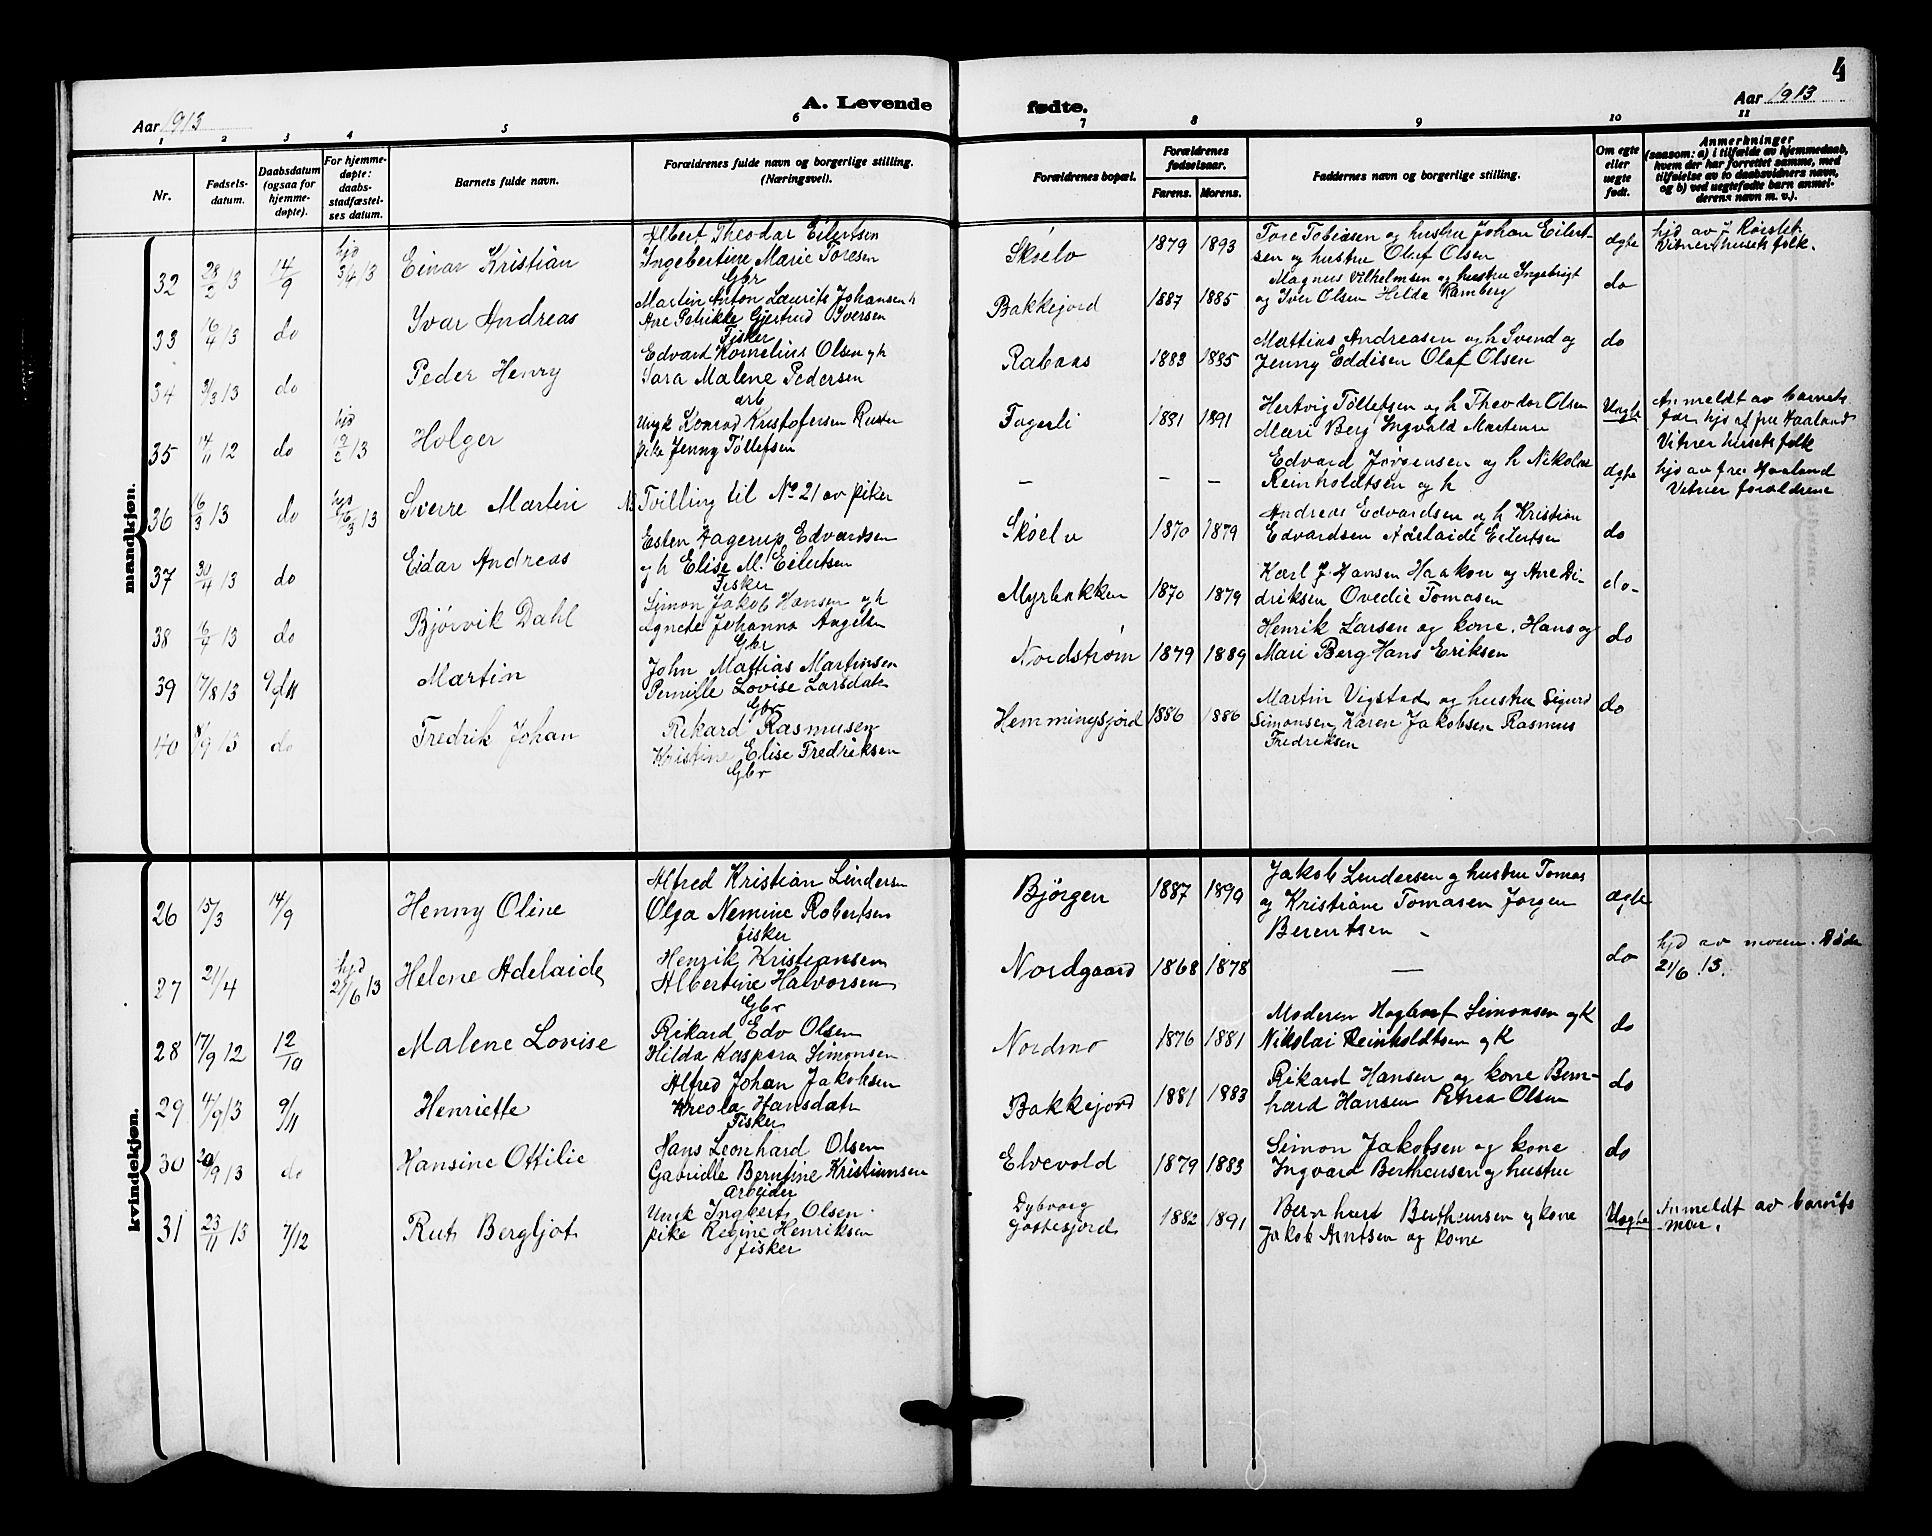 4
Aar 1913
A. Levende fødte.
Aar 1913
1 2 3 4 5 6 7 8 9 10 11
Nr.
Fødselsdatum.
Daabsdatum (ogsaa for hjemmedøpte).
For hjemmedøpte: daabsstadfæstelses datum.
Barnets fulde navn.
Forældrenes fulde navn og borgerlige stilling. (Næringsvei).
Forældrenes bopæl.
Forældrenes fødselsaar.
Farens. Morens.
Faddernes navn og borgerlige stilling.
Om egte eller uegte født.
Anmerkninger (saasom: a) i tilfælde av hjemmedaab, hvem der har forrettet samme, med tilføielse av to daabsvidners navn, og b) ved uegtefødte barn anmelderens navn m. v.).
mandkjøn.
32 28/2 13 14/9 hjd 3/4 13 Einar Kristian
Albert Theodor Eilertsen
Ingebertine Marie Toresen
Gbr
Skøelv 1879 1893
Tore Tobiasen og hustru Johan Eilert-
sen og hustru Oluf Olsen
ægte
hjd av J Rørslet
Vitner husets folk.
33 16/4 13 do Ivar Andreas
Martin Anton Laurits Johansen h
Ane Petrikke Gjertrud Iversen
Fisker
Bakkejord 1887 1885
Magnus Vilhelmsen og hustru Ingebrigt
og Iver Olsen Hilda Ramberg
do
34 31/3 13 do Peder Henry
Edvard Kornelius Olsen og h
Sara Malene Pedersen
arb
Rabaas 1883 1885
Mattias Andreasen og h Svend og
Jenny Eddisen Olaf Olsen
do
35 14/11 12 do hjd 13 Holger
Ungk Konrad Kristofersen
pike Jenny Tollefsen
Fagerli 1891
Hertvig Tollefsen og h Theodor Olsen
Mari Berg Ingvald Martense
Uægte
Anmeldt av barnets
far hjd af fru Haaland
Vitner husets folk
36 16/3 13 do hjd 16/3 13 Sverre Martin
Tvilling til No 21 av piker
— — —
Edvard Jørgensen og h Nikolai
Reinholdtsen og h
ægte
hjd av fru Haaland
Vitner forældrene
37 30/4 13 do Eidar Andreas
Esten Hagerup Edvardsen
og h Elise M. Eilertsen
Fisker
Skøelv 1870 1879
Andreas Edvardsen og h Kristian
Edvardsen Adelaide Eilertsen
do
38 13 do Bjørvik Dahl
Simon Jakob Hansen og h
Agnete Johanna Angelsen
Gbr
Myrbakken 1870 1879
Karl J. Hansen Haakon og Ane Di-
driksen Ovedie Tomasen
do-
39 17/8 13 9/11 Martin
John Mattias Martinsen
Pernille Lovise Larsdatr
Gbr
Nordstrøm 1879 1889
Henrik Larsen og kone. Hans og
Mari Berg Hans Eriksen
do
40 do Fredrik Johan
Rikard Rasmusen
Kristine Elise Fredriksen
Gbr
Hemmingsjord 1886 1886
Martin Vigstad og hustru Sigurd
Simonsen, Karen Jakobsen Rasmus
Fredriksen
do
kvindekjøn.
26 15/3 14/9 Henny Oline
Alfred Kristian Lindersen
Olga Nemine Robertsen
fisker
Bjørgen 1887 1890
Jakob Lendersen og hustru Tomas
og Kristiane Tomasen Jørgen
Berentsen
ægte
27 21/4 hjd 21/6 13 Helene Adelaide
Henrik Kristiansen
Albertine Halvorsen
Gbr
Nordgaard 1868 1878
—
do
hjd av moren. Døde
21/6 13.
28 17/9 12 12/10 Malene Lovise
Rikard Edv Olsen
Hilda Kaspara Simonsen
Nordmo 1876 1881
Moderen Hagbart Simonsen og K
Nikolai Reinholdtsen og K
do
29 4/9 13 9/11 Henriette
Alfred Johan Jakobsen
Kreola Hansdatr
Fisker
Bakkejord 1881 1883
Rikard Hansen og kone Bern-
hard Hansen Petrea Olsen
do
30 20/9 13 do Hansine Ottilie
Hans Leonhard Olsen
Gabrielle Berntine Kristiansen
Arbeider
Elvevold 1879 1883
Simon Jakobsen og kone
Ingvard Bertheusen og hustru
do
31 23/11 13 7/12 Rut Bergljot
Ungk Ingbert Olsen
pike Regine Henriksen
fisker
Dybvaag
Gottesjord 1882 1891
Bernhard Bertheusen og kone
Jakob Arntsen og kone
Uægte
Anmeldt av barnets
mor.